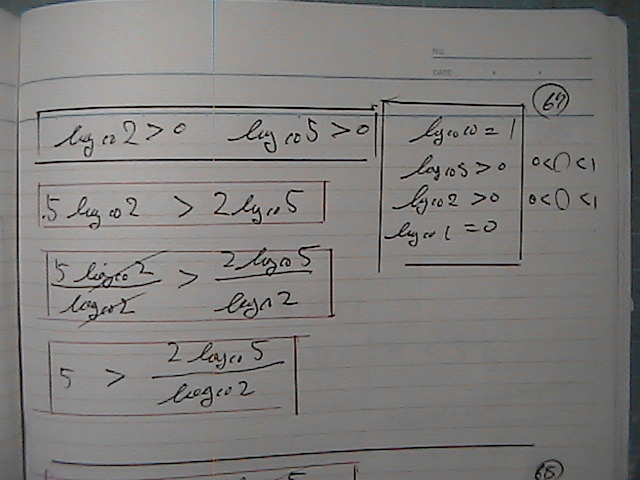 No.
DATE
67
log₁₀2>0 log₁₀5>0
log₁₀10=1
log₁₀5>0 0<()<1
log₁₀2>0 0<()<1
log₁₀1=0
5log₁₀2 > 2log₁₀5
5log₁₀2/log₁₀2 > 2log₁₀5/log₁₀2
5 > 2log₁₀5/log₁₀2
68